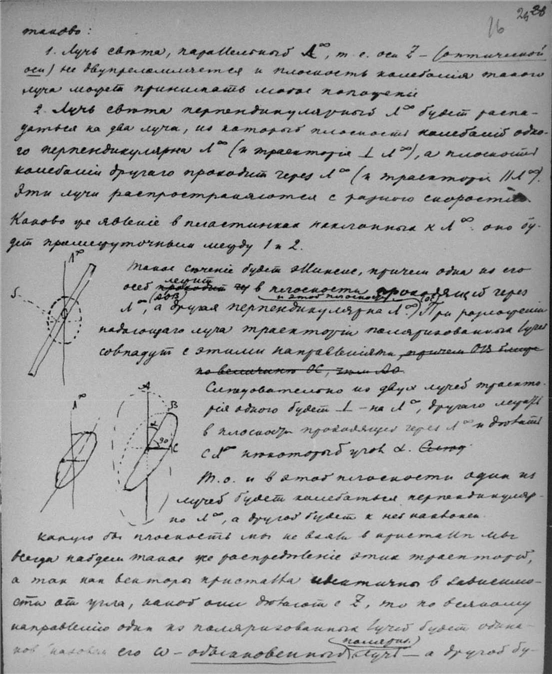 16 25 26
таково:
1. Лучъ свѣта, параллельный Λ∞, т.е. оси Z – (оптической
оси) не двупреломляется и плоскость колебанія такого
луча можетъ принимать любое положеніе
2. Лучъ свѣта перпендикулярный Λ∞ будетъ распа-
даться на два луча, изъ которыхъ плоскость колебаній одно-
го перпендикулярна Λ∞ (и траекторія ⊥ Λ∞), а плоскость
колебаній другаго проходитъ черезъ Λ∞ (и траекторія || Λ∞).
Эти лучи распространяются съ разною скоростью.
Каково же явленіе въ пластинкахъ наклонныхъ къ Λ∞. оно бу-
детъ промежуточнымъ между 1 и 2.
Λ∞
S.
Такое сѣченіе будетъ эллипсъ, причемъ одна изъ его
осей лежитъ въ плоскости проходящей черезъ
Λ∞, а другая перпендикулярна Λ∞. При разложеніи
падающаго луча траекторіи поляризованныхъ лучей
совпадутъ съ этими направленіями, причемъ
по величинѣ ОС, чѣмъ АО
Слѣдовательно изъ двухъ лучей траекто-
рія одного будетъ ⊥ на Λ∞, другаго лежать
въ плоскости проходящей черезъ Λ∞ и дѣлать
съ Λ∞ нѣкоторый уголъ α.
Λ∞
A
B
90
C
Т.о. и въ этой плоскости одинъ изъ
лучей будетъ колебаться перпендикуляр-
но Λ∞, а другой будетъ къ ней наклоненъ.
Какую бы плоскость мы не взяли въ кристаллѣ мы
всегда найдемъ такое же распредѣленіе этихъ траекторій,
а такъ какъ векторы кристалла идентичны въ зависимо-
сти отъ угла, какой они дѣлаютъ съ Z, то по всякому
направленію одинъ изъ поляризованныхъ лучей будетъ одина-
ковъ его ω – обыкновенный лучъ – а другой бу-